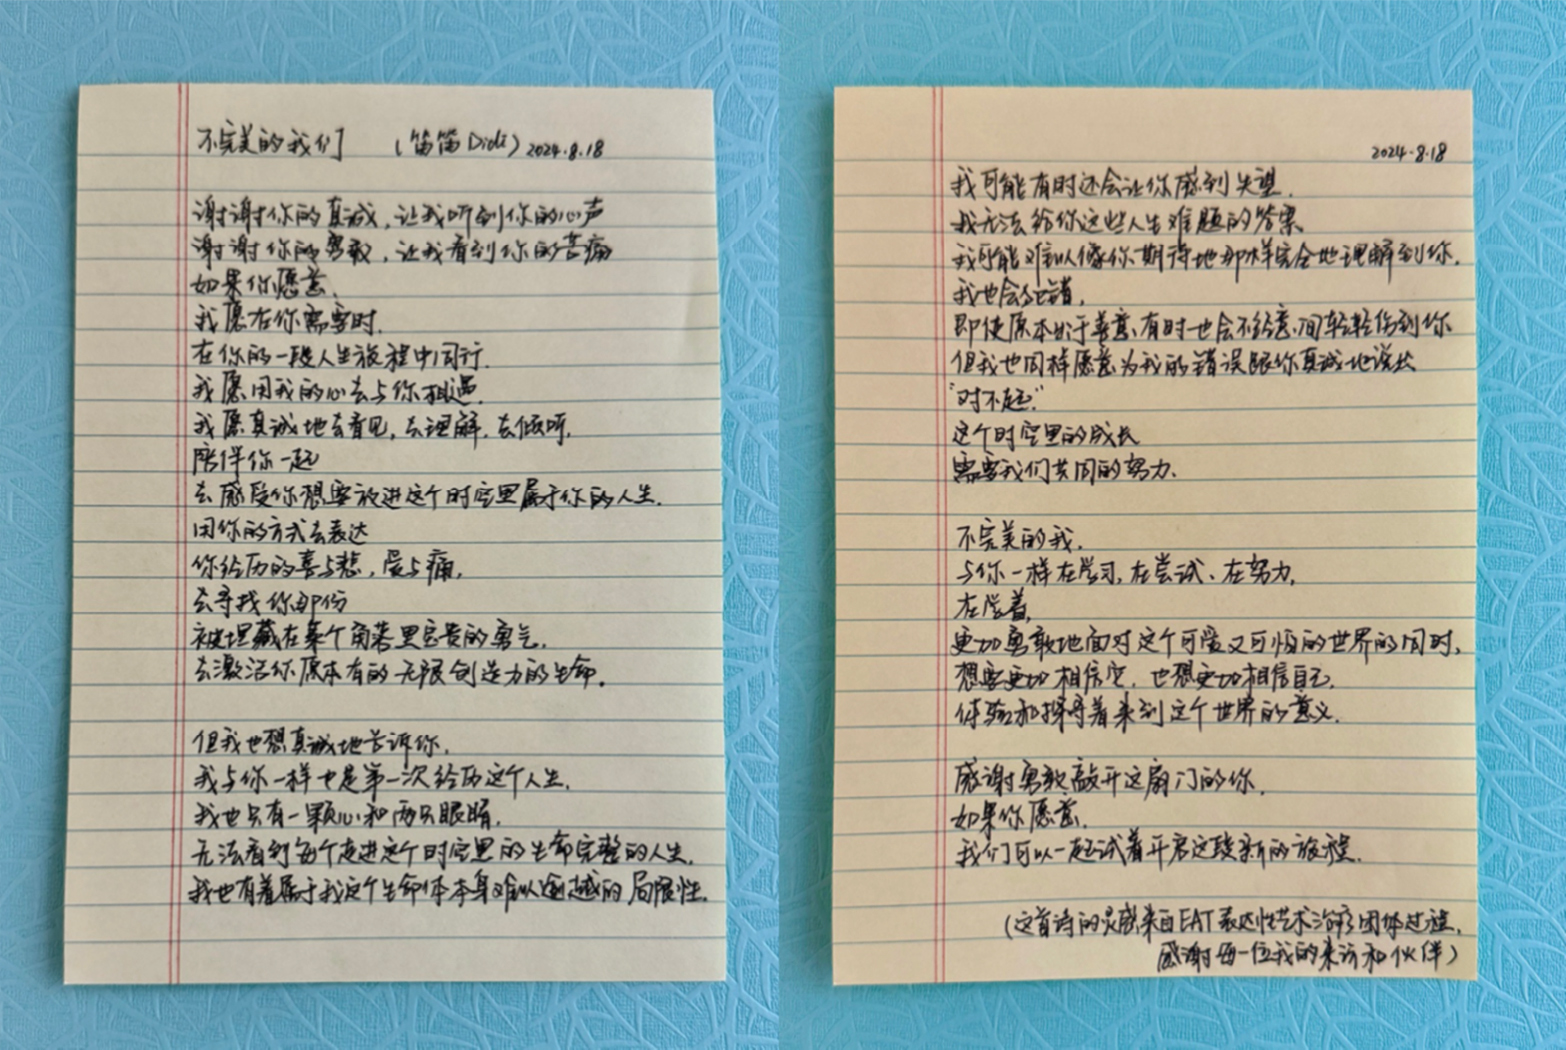 不完美的我们 (笛笛Didi) 2024.8.18
谢谢你的真诚，让我听到你的心声
谢谢你的勇敢，让我看到你的苦痛
如果你愿意，
我愿在你需要时，
在你的一段人生旅程中同行。
我愿用我的心去与你相遇，
我愿真诚地去看见，去理解，去倾听，
陪伴你一起
去感受你想要放进这个时空里属于你的人生，
用你的方式去表达
你经历的喜与悲，爱与痛，
去寻找你那份
被埋藏在某个角落里宝贵的勇气，
去激活你原本有的无限创造力的生命。
但我也想真诚地告诉你，
我与你一样也是第一次经历这个人生，
我也只有一颗心和两只眼睛，
无法看到每个走进这个时空里的生命完整的人生，
我也有着属于我这个生命体本身难以逾越的局限性。
2024.8.18
我可能有时还会让你感到失望，
我无法给你这些人生难题的答案
我可能难以像你期待地那样完全地理解到你，
我也会犯错，
即使原本出于善意，有时也会不经意间轻轻伤到你
但我也同样愿意为我的错误跟你真诚地说出
“对不起”
这个时空里的成长
需要我们共同的努力。
不完美的我，
与你一样在学习，在尝试、在努力，
在学着，
更加勇敢地面对这个可爱又可怕的世界的同时，
想要更加相信它，也想更加相信自己，
体验和探寻着来到这个世界的意义。
感谢勇敢敲开这扇门的你，
如果你愿意，
我们可以一起试着开启这段新的旅程。
(这首诗的灵感来自EAT表达性艺术治疗团体过程，
感谢每一位我的来访和伙伴)